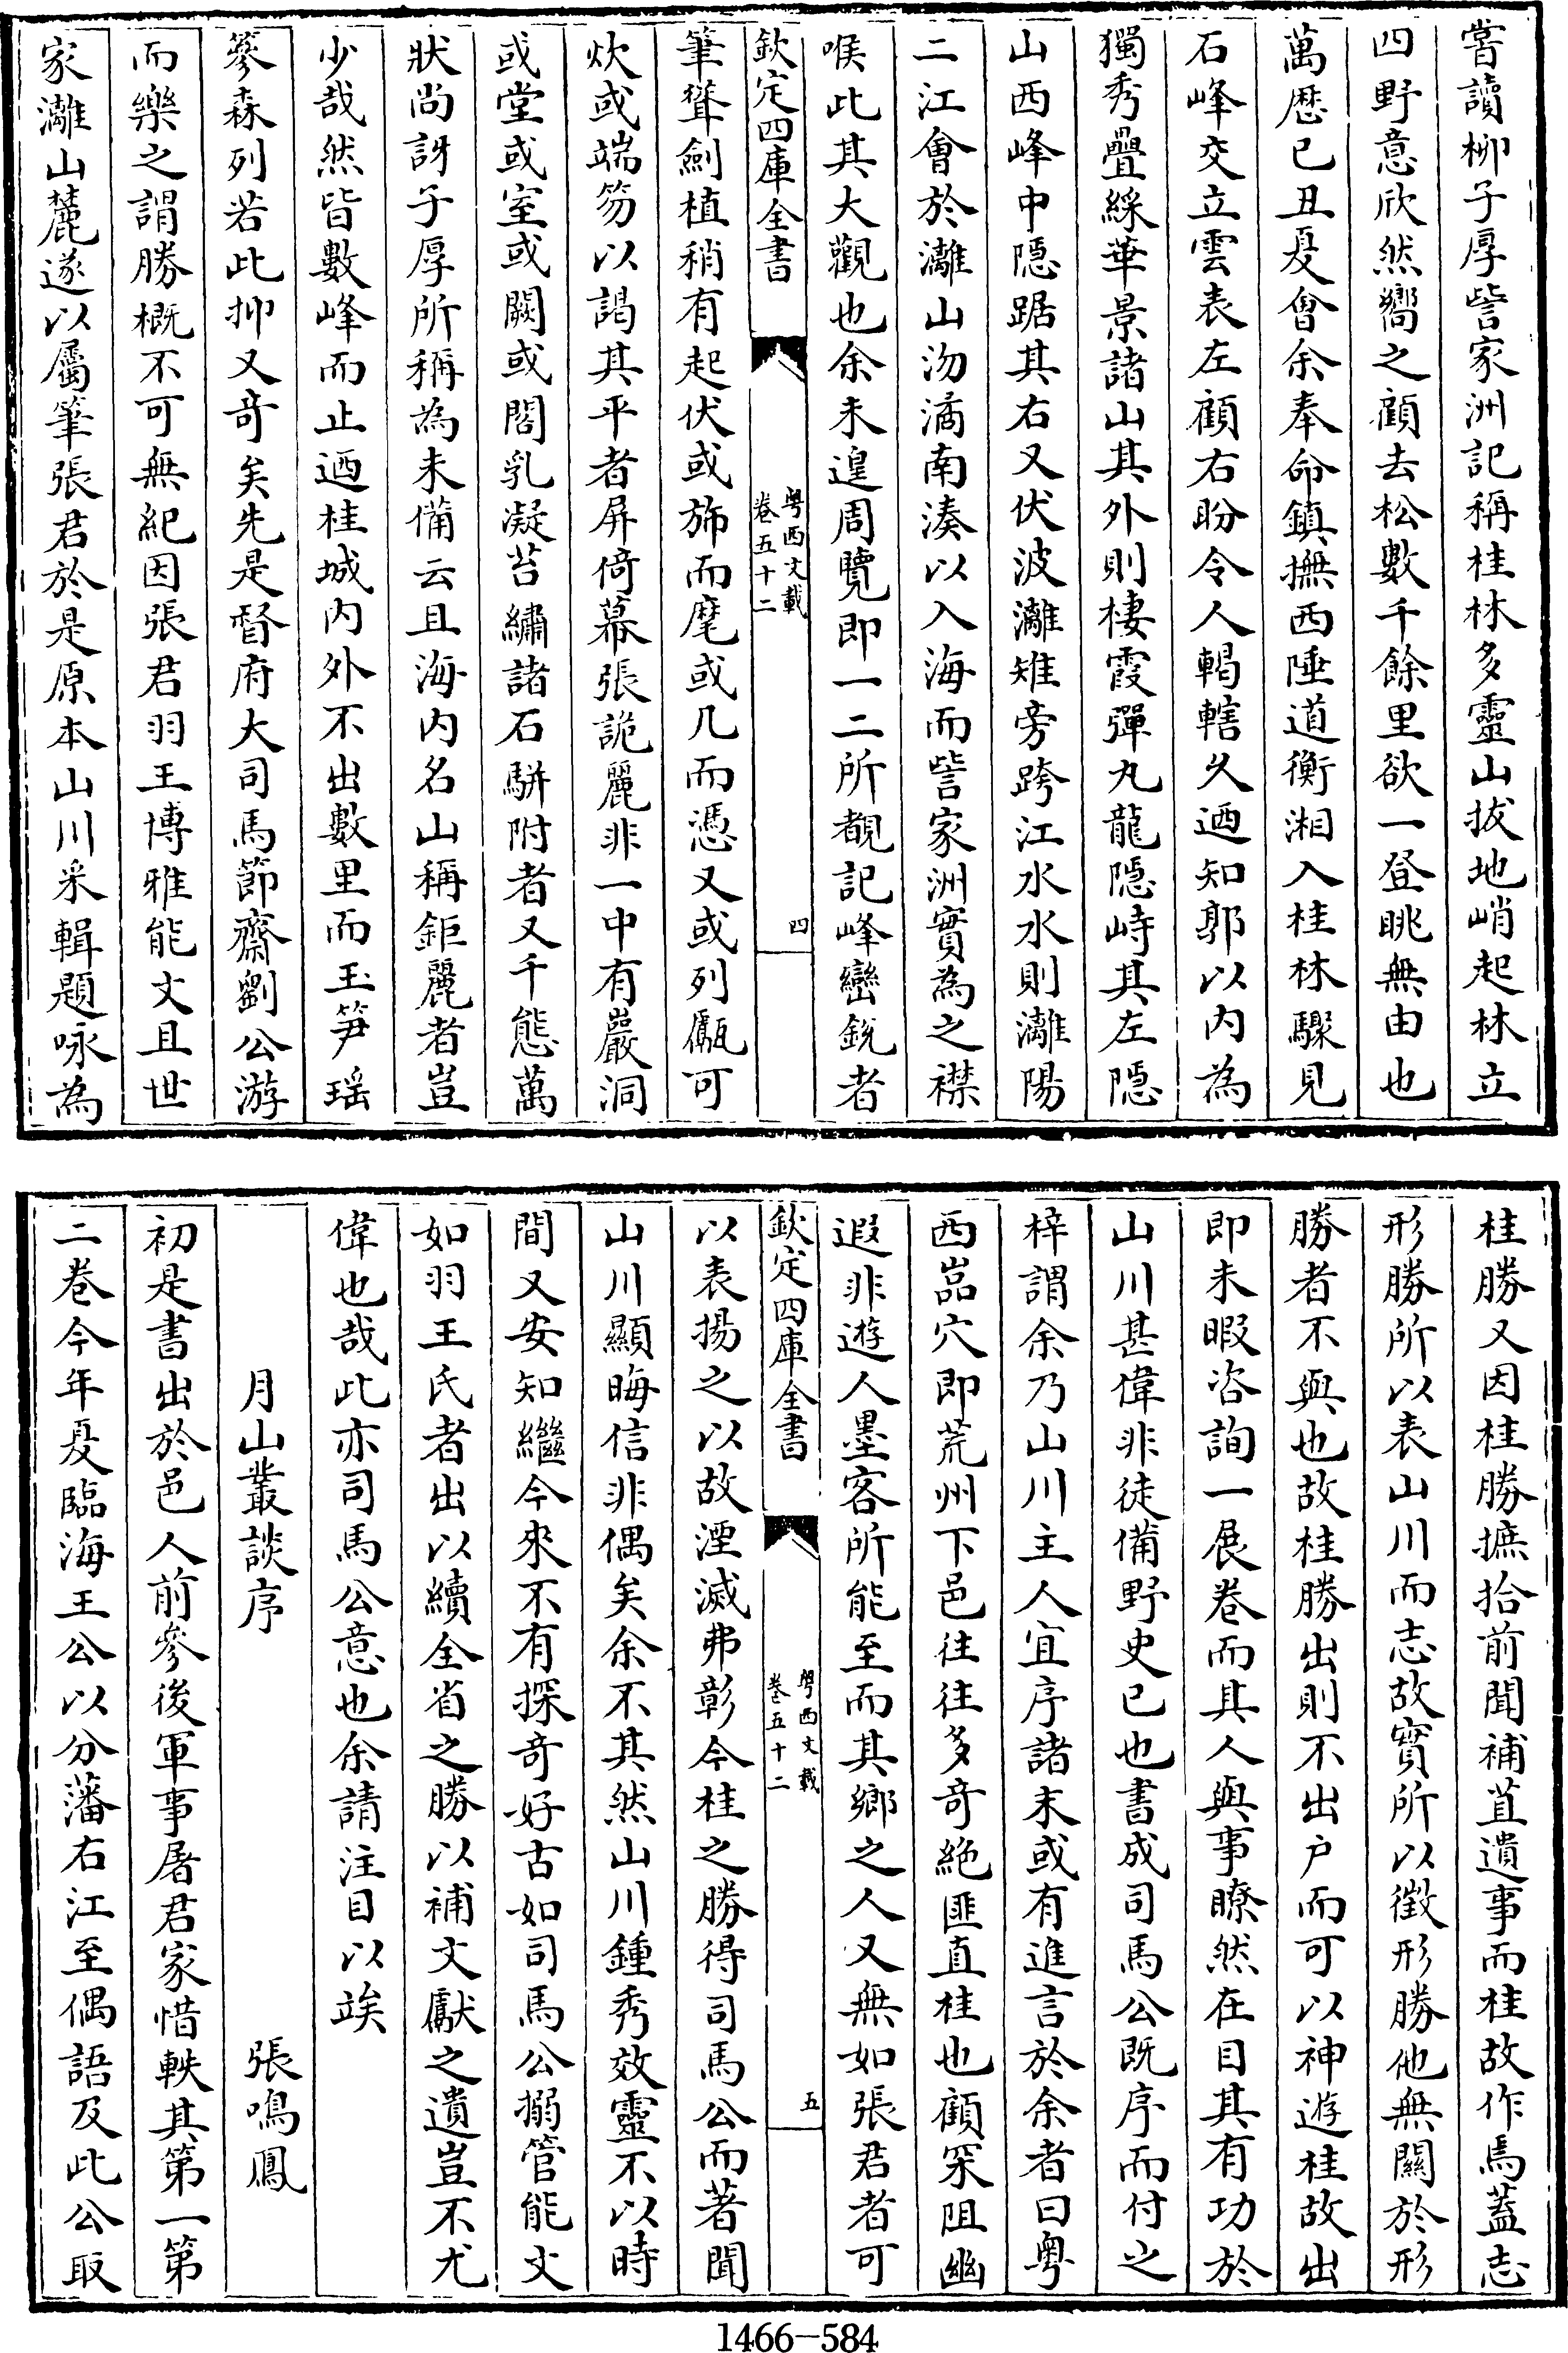 嘗讀栁子厚訾家洲記稱桂林多靈山拔地峭起林立
四野意欣然嚮之顧去松數千餘里欲一登眺無由也
萬厯已丑夏㑹余奉命鎮撫西陲道衡湘入桂林驟見
石峰交立雲表左顧右盼令人轇轕久迺知郭以内為
獨秀疊綵華景諸山其外則棲霞彈丸龍隱峙其左隱
山西峰中隱踞其右又伏波灕雉旁跨江水水則灕陽
二江㑹於灕山沕潏南湊以入海而訾家洲實為之襟
喉此其大觀也余未遑周覽即一二所覩記峰巒銳者
欽定四庫全書
粤西文載
卷五十二
四
筆聳劍植稍有起伏或斾而麾或几而憑又或列甗可
炊或端笏以謁其平者屏倚幕張詭麗非一中有巖洞
或堂或室或闕或閣乳凝苔繡諸石駢附者又千態萬
狀尚訝子厚所稱為未備云且海内名山稱鉅麗者豈
少哉然皆數峰而止迺桂城内外不出數里而玉笋瑶
篸森列若此抑又竒矣先是督府大司馬節齋劉公游
而樂之謂勝概不可無紀因張君羽王博雅能文且世
家灕山麓遂以屬筆張君於是原本山川采輯題咏為
桂勝又因桂勝摭拾前聞補苴遺事而桂故作焉蓋志
形勝所以表山川而志故實所以徴形勝他無關於形
勝者不與也故桂勝出則不出户而可以神遊桂故出
即未暇咨詢一展卷而其人與事瞭然在目其有功於
山川甚偉非徒備野史已也書成司馬公既序而付之
梓謂余乃山川主人宜序諸末或有進言於余者曰粤
西嵓穴即荒州下邑往往多竒絶匪直桂也顧罙阻幽
遐非遊人墨客所能至而其鄉之人又無如張君者可
欽定四庫全書
粤西文載
卷五十二
五
以表揚之以故湮滅弗彰今桂之勝得司馬公而著聞
山川顯晦信非偶矣余不其然山川鍾秀效靈不以時
間又安知繼今來不有探竒好古如司馬公搦管能文
如羽王氏者出以續全省之勝以補文獻之遺豈不尤
偉也哉此亦司馬公意也余請注目以竢
月山叢談序
張鳴鳳
初是書出於邑人前參後軍事屠君家惜軼其第一第
二卷今年夏臨海王公以分藩右江至偶語及此公取
1466-584